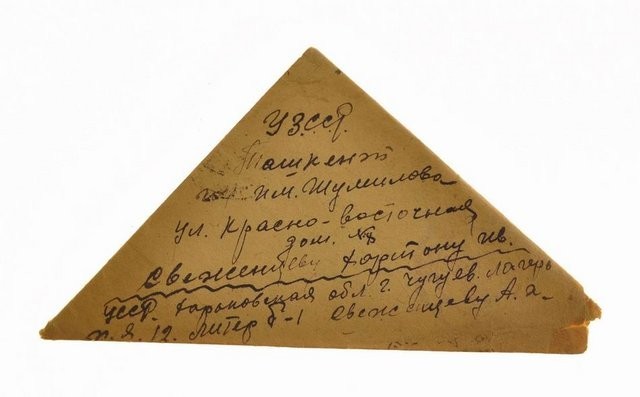 УзССР.
Ташкент
им. Шумилова
ул. Красно-восточная
дом. №
Свеженцеву Харитону Ив.
УССР. Харьковская обл. г. Чугуев. Лагерь
п. я. 12. Литер Г-1 Свеженцеву А. А.